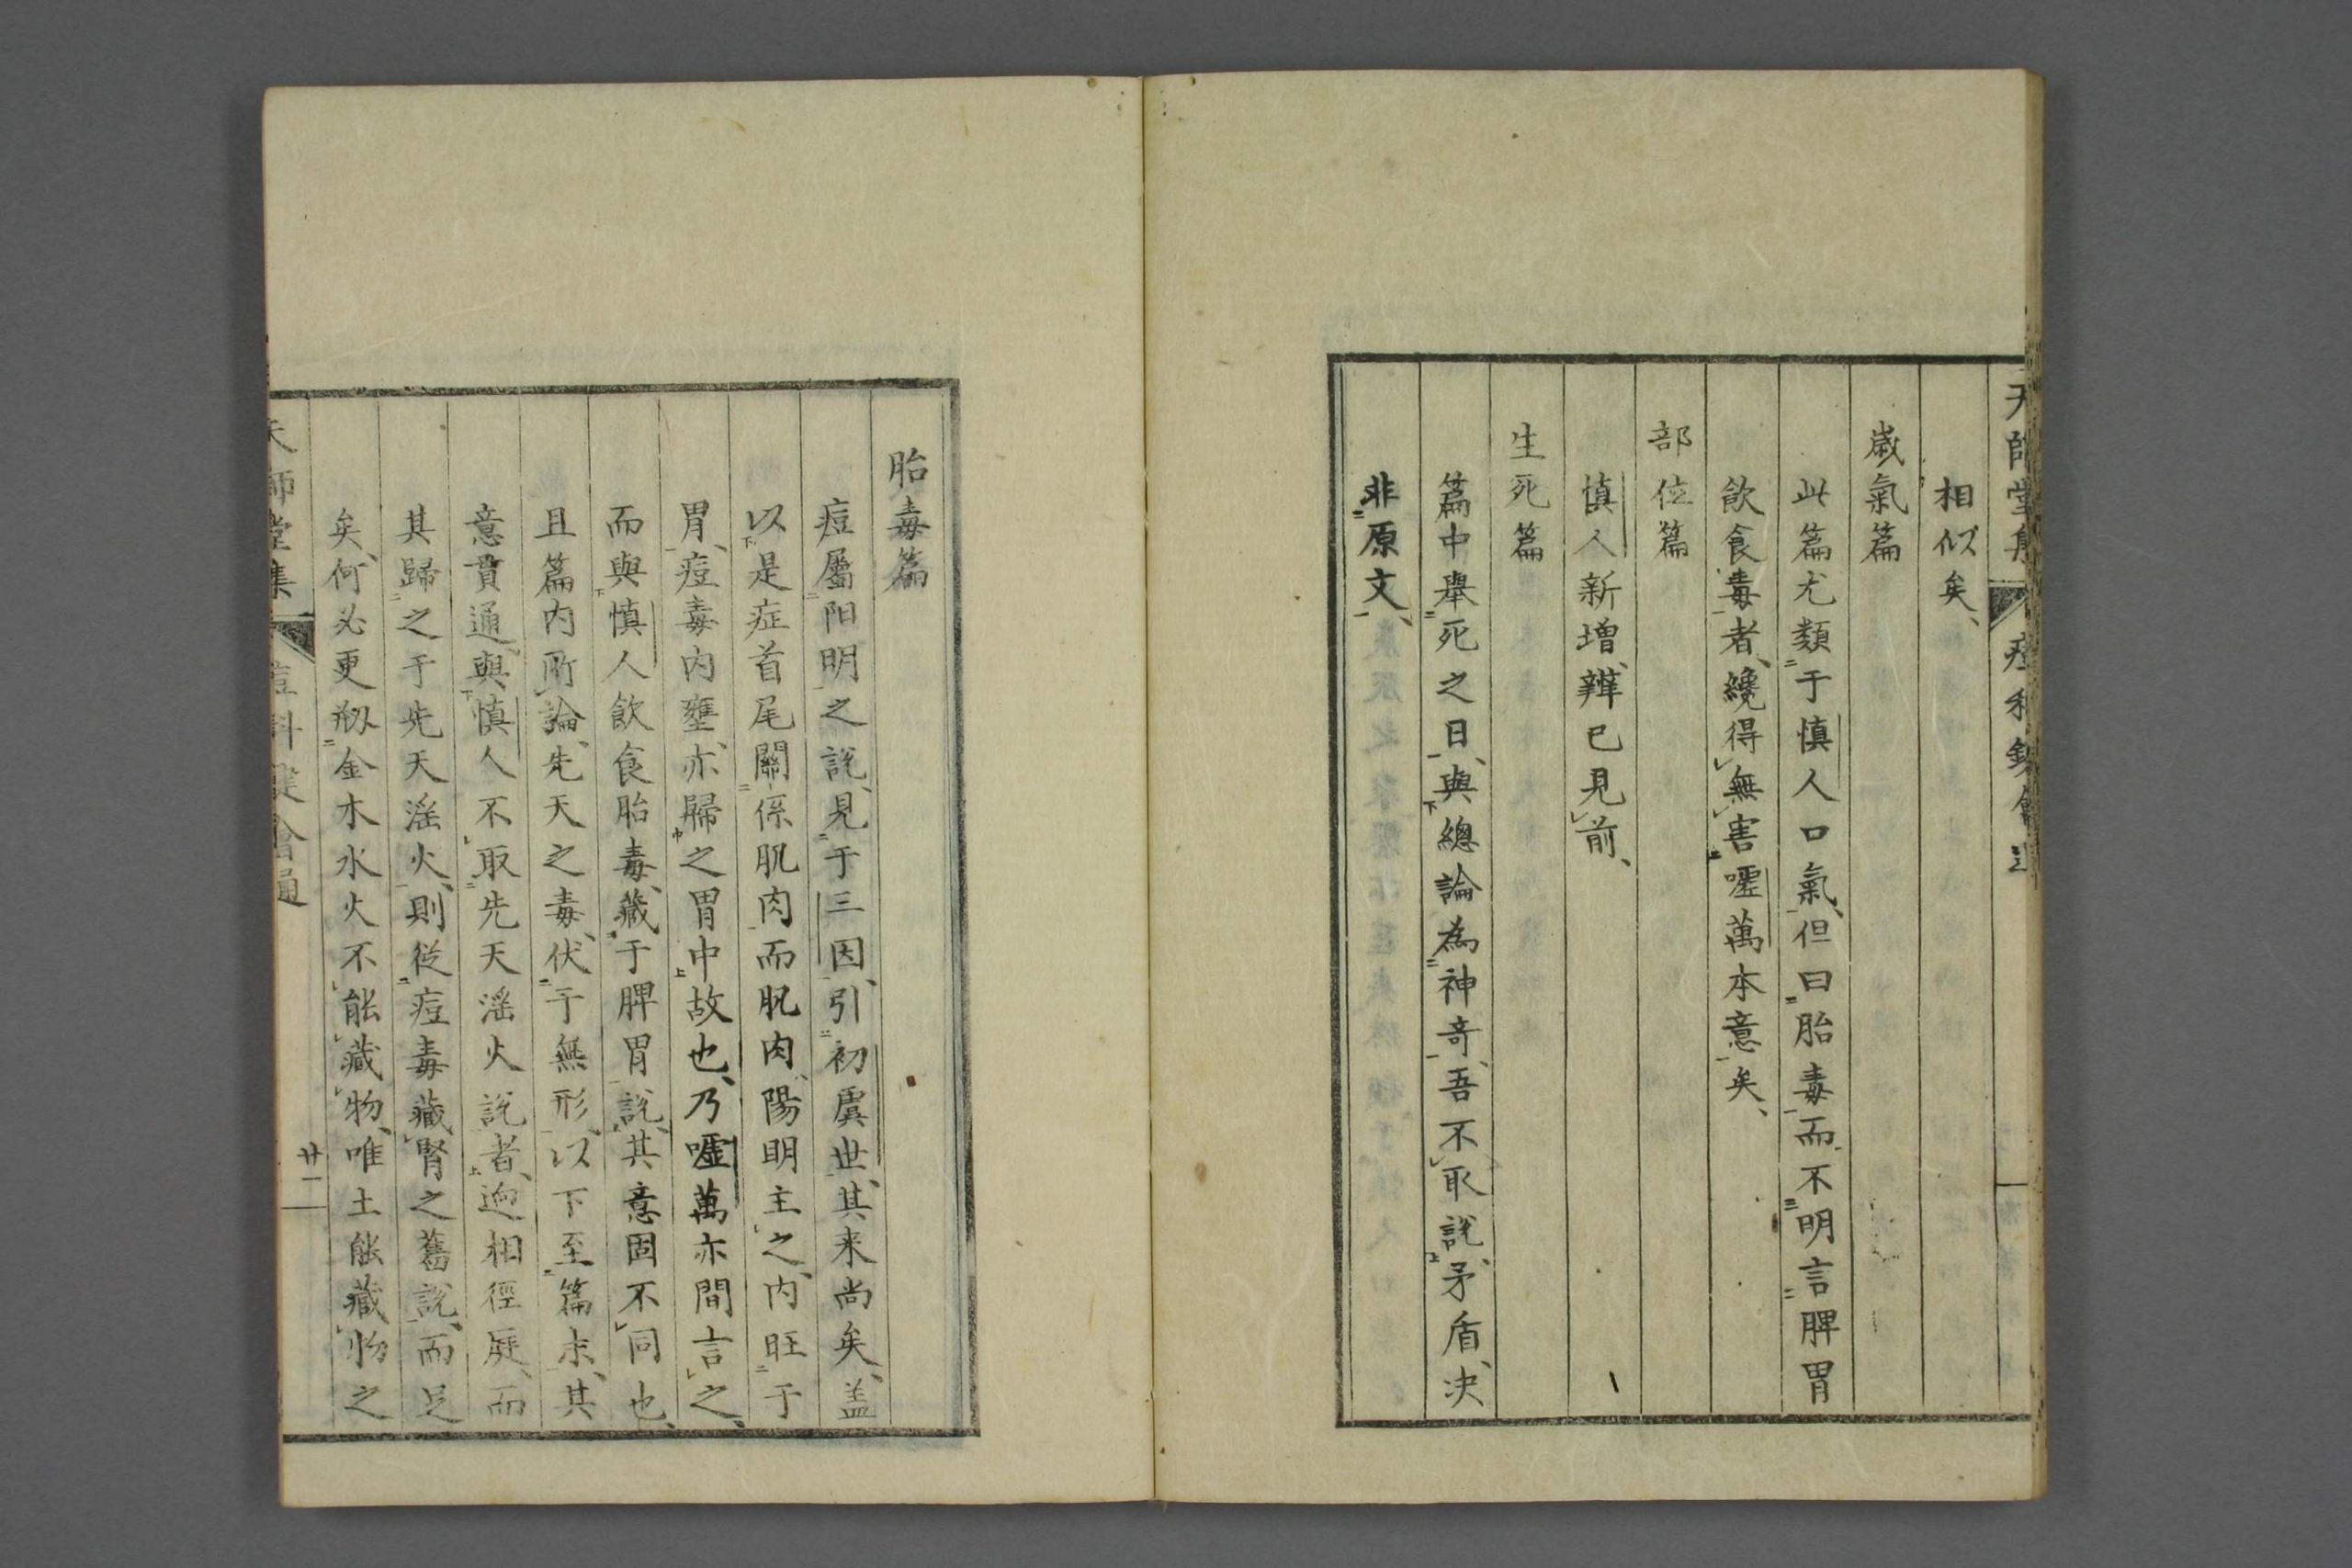 相似矣、
歳氣篇
此篇尤類于慎人口氣、但曰胎毒而不明言脾胃
飲食毒者、纔得無害嘘萬本意矣、
部位篇
慎人新增、辨已見前、
生死篇
篇中舉死之日、與總論為神奇、吾不取説、矛盾、決
非原文、
胎毒篇
痘屬阳明之説、見于三因、引初虞世、其来尚矣、盖
以是症首尾關係肌肉而肌肉、陽明主之、内旺于
胃、痘毒内壅、亦歸之胃中故也、乃嘘萬亦間言之、
而與慎人飲食胎毒、藏于脾胃説、其意固不同也、
且篇内所論、先天之毒、伏于無形、以下至篇末、其
意貫通、與慎人不取先天淫火説者、逈相徑庭、而
其歸之于先天淫火、則從痘毒藏腎之舊説、而足
矣、何必更扨金木水火不能藏物、唯土能藏物之
天師堂集 痘科鍵會通
廿一